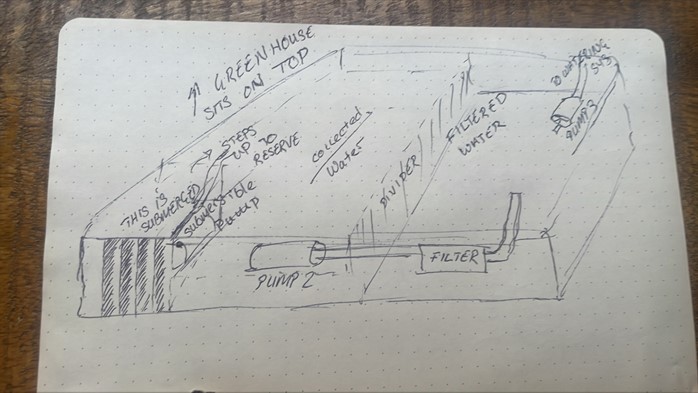 ↑ GREENHOUSE
SITS ON TOP
STEPS
UP TO
RESERVE
THIS IS
SUBMERGED
SUBMERSIBLE
PUMP
collected
Water
DIVIDER
FILTERED
WATER
WATERING
SYS
PUMP 3
PUMP 2
FILTER